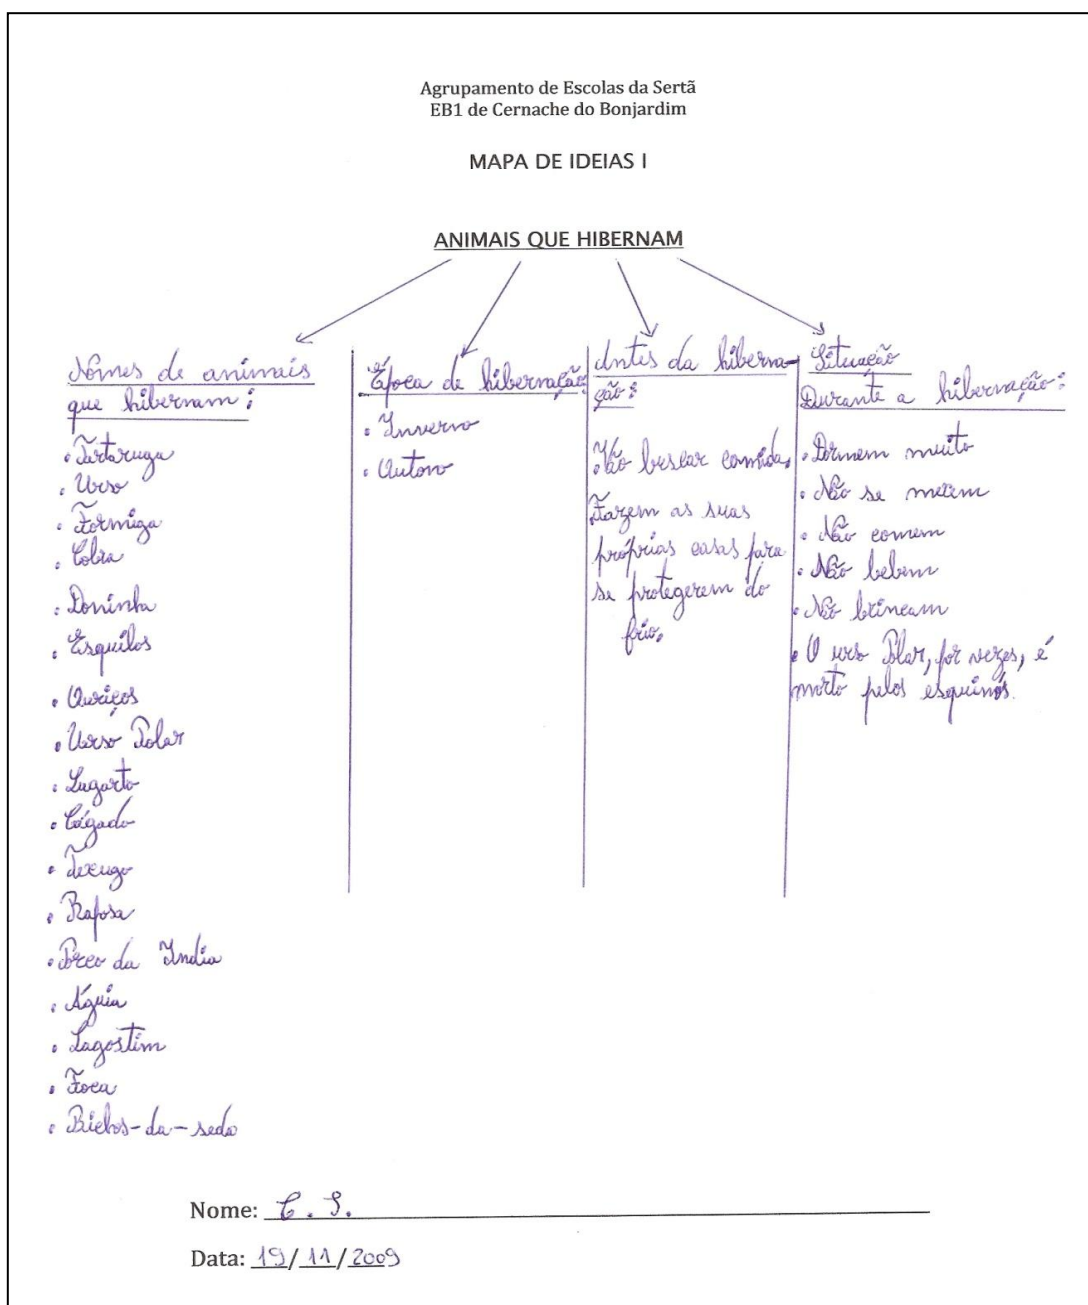 Agrupamento de Escolas da Sertã
EB1 de Cernache do Bonjardim
MAPA DE IDEIAS I
ANIMAIS QUE HIBERNAM
Nomes de animais
que hibernam:
• Tartaruga
• Urso
• Formiga
• Cobra
• Doninha
• Esquilos
• Ouriços
• Urso Polar
• Lagarto
• Cágado
• Texugo
• Raposa
• Porco da India
• Águia
• Lagostim
• Foca
• Bichos-da-seda
Época de hibernação:
• Inverno
• Outono
Antes da hiberna-
ção:
• Vão buscar comida.
Fazem as suas
próprias casas para
se protegerem do
frio.
Situação
Durante a hibernação:
• Dormem muito
• Não se mexem
• Não comem
• Não bebem
• Não brincam
• O urso Polar, por vezes, é
morto pelos esquimós.
Nome: C. S.
Data: 19/11/2009